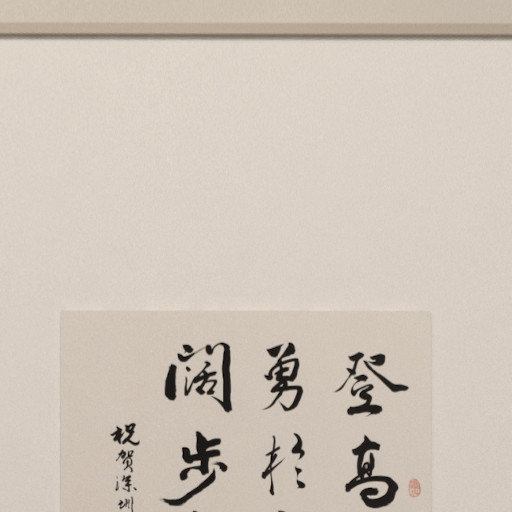 登高
勇於
阔步
祝贺深圳